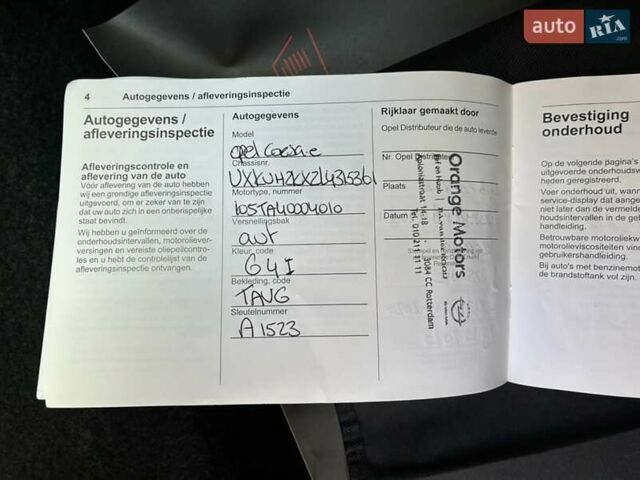 auto RIA
.com
4 Autogegevens / afleveringsinspectie
Autogegevens /
afleveringsinspectie
Afleveringscontrole en
aflevering van de auto
Vóór aflevering van de auto hebben
wij een grondige afleveringsinspectie
uitgevoerd, om er zeker van te zijn
dat uw auto zich in een onberispelijke
staat bevindt.
Wij hebben u geïnformeerd over de
onderhoudsintervallen, motoroliever-
versingen en vereiste oliepeilcontro-
les en u hebt de controlelijst van de
afleveringsinspectie ontvangen.
Autogegevens
Model
opel Corsa-e
Chassisnr.
VXKUHZKXZL4315361
Motortype, nummer
Versnellingsbak
aut
Kleur, code
G4I
Bekleding, code
TAVG
Sleutelnummer
A1523
Rijklaar gemaakt door
Opel Distributeur die de auto leverde
Nr. Opel Distributeur
Plaats
Datum
Orange Motors
Boloniastraat 14-18 - 3084 CC Rotterdam
Tel. 010 211 11 11
Bevestiging
onderhoud
Op de volgende pagina's
uitgevoerde onderhoudsw
heden geregistreerd.
Voer onderhoud uit, wann
service-display dat aange
niet later dan de vermelde
houdsintervallen in de geb
handleiding.
Betrouwbare motoroliekw
motorolieviscositeiten vind
gebruikershandleiding.
Bij auto's met benzinemot
de brandstoftank vol zijn.